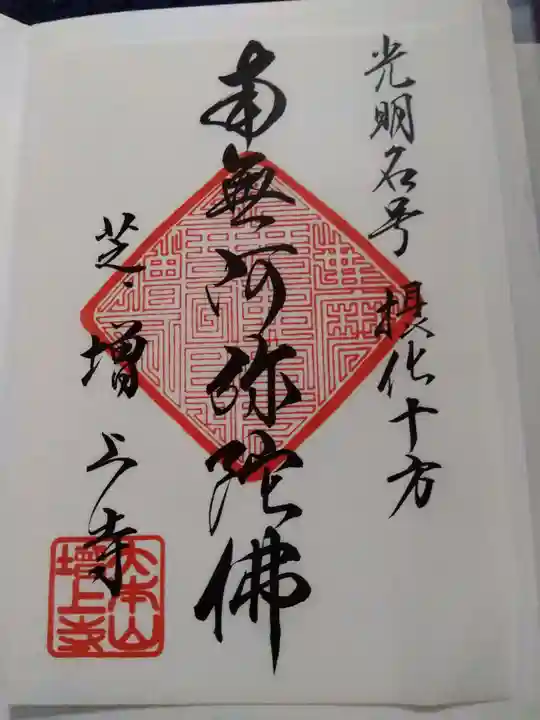 光明名号 摂化十方
南無阿弥陀佛
芝 增上寺
大本山
增上寺